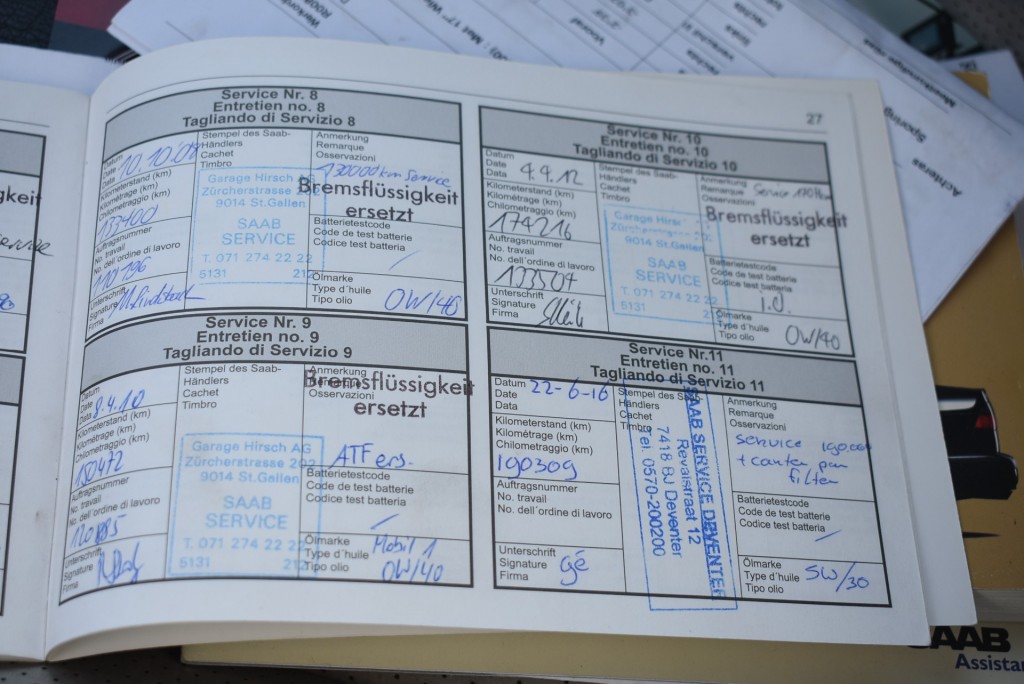 27
Service Nr. 8
Entretien no. 8
Tagliando di Servizio 8
Datum
Date
Data
10.10.08
Stempel des Saab-
Händlers
Cachet
Timbro
Anmerkung
Remarque
Osservazioni
130000 km Service
Bremsflüssigkeit
ersetzt
Kilometerstand (km)
Kilométrage (km)
Chilometraggio (km)
133400
Garage Hirsch AG
Zürcherstrasse
9014 St.Gallen
SAAB
SERVICE
T. 071 274 22 22
5131
Auftragsnummer
No. travail
No. dell'ordine di lavoro
110196
Batterietestcode
Code de test batterie
Codice test batteria
Unterschrift
Signature
Firma
Ölmarke
Type d'huile
Tipo olio
0W/40
Service Nr. 9
Entretien no. 9
Tagliando di Servizio 9
Datum
Date
Data
8.4.10
Stempel des Saab-
Händlers
Cachet
Timbro
Anmerkung
Remarque
Osservazioni
Bremsflüssigkeit
ersetzt
ATF ers.
Kilometerstand (km)
Kilométrage (km)
Chilometraggio (km)
150472
Garage Hirsch AG
Zürcherstrasse 202
9014 St.Gallen
SAAB
SERVICE
T. 071 274 22 22
5131
Auftragsnummer
No. travail
No. dell'ordine di lavoro
120885
Batterietestcode
Code de test batterie
Codice test batteria
Unterschrift
Signature
Firma
Ölmarke
Type d'huile
Tipo olio
Mobil 1
0W/40
Service Nr. 10
Entretien no. 10
Tagliando di Servizio 10
Datum
Date
Data
4.9.12
Stempel des Saab-
Händlers
Cachet
Timbro
Anmerkung
Remarque
Osservazioni
Bremsflüssigkeit
ersetzt
Kilometerstand (km)
Kilométrage (km)
Chilometraggio (km)
174216
Garage
9014 St.Gallen
SAAB
SERVICE
T. 071 274 22 22
5131
Auftragsnummer
No. travail
No. dell'ordine di lavoro
133507
Batterietestcode
Code de test batterie
Codice test batteria
i.O.
Unterschrift
Signature
Firma
Ölmarke
Type d'huile
Tipo olio
0W/40
Service Nr.11
Entretien no. 11
Tagliando di Servizio 11
Datum
Date
Data
22-6-16
Stempel des Saab-
Händlers
Cachet
Timbro
Anmerkung
Remarque
Osservazioni
service 190000
+ carter pan
filter
Kilometerstand (km)
Kilométrage (km)
Chilometraggio (km)
190309
SAAB SERVICE DEVENTER
Revalstraat 12
7418 BJ Deventer
Tel. 0570-200200
Auftragsnummer
No. travail
No. dell'ordine di lavoro
Batterietestcode
Code de test batterie
Codice test batteria
Unterschrift
Signature
Firma
gé
Ölmarke
Type d'huile
Tipo olio
5W/30
Achteras
Sporing
SAAB
Assistan